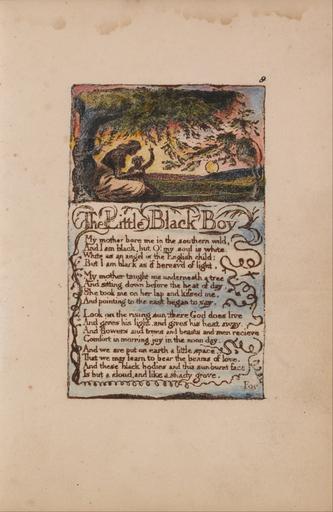 9
The Little Black Boy
My mother bore me in the southern wild,
And I am black, but O! my soul is white
White as an angel is the English child:
But I am black as if bereav'd of light.
My mother taught me underneath a tree
And sitting down before the heat of day
She took me on her lap and kissed me,
And pointing to the east began to say.
Look on the rising sun: there God does live
And gives his light, and gives his heat away.
And flowers and trees and beasts and men recieve
Comfort in morning joy in the noon day.
And we are put on earth a little space,
That we may learn to bear the beams of love,
And these black bodies and this sun-burnt face
Is but a cloud, and like a shady grove.
For